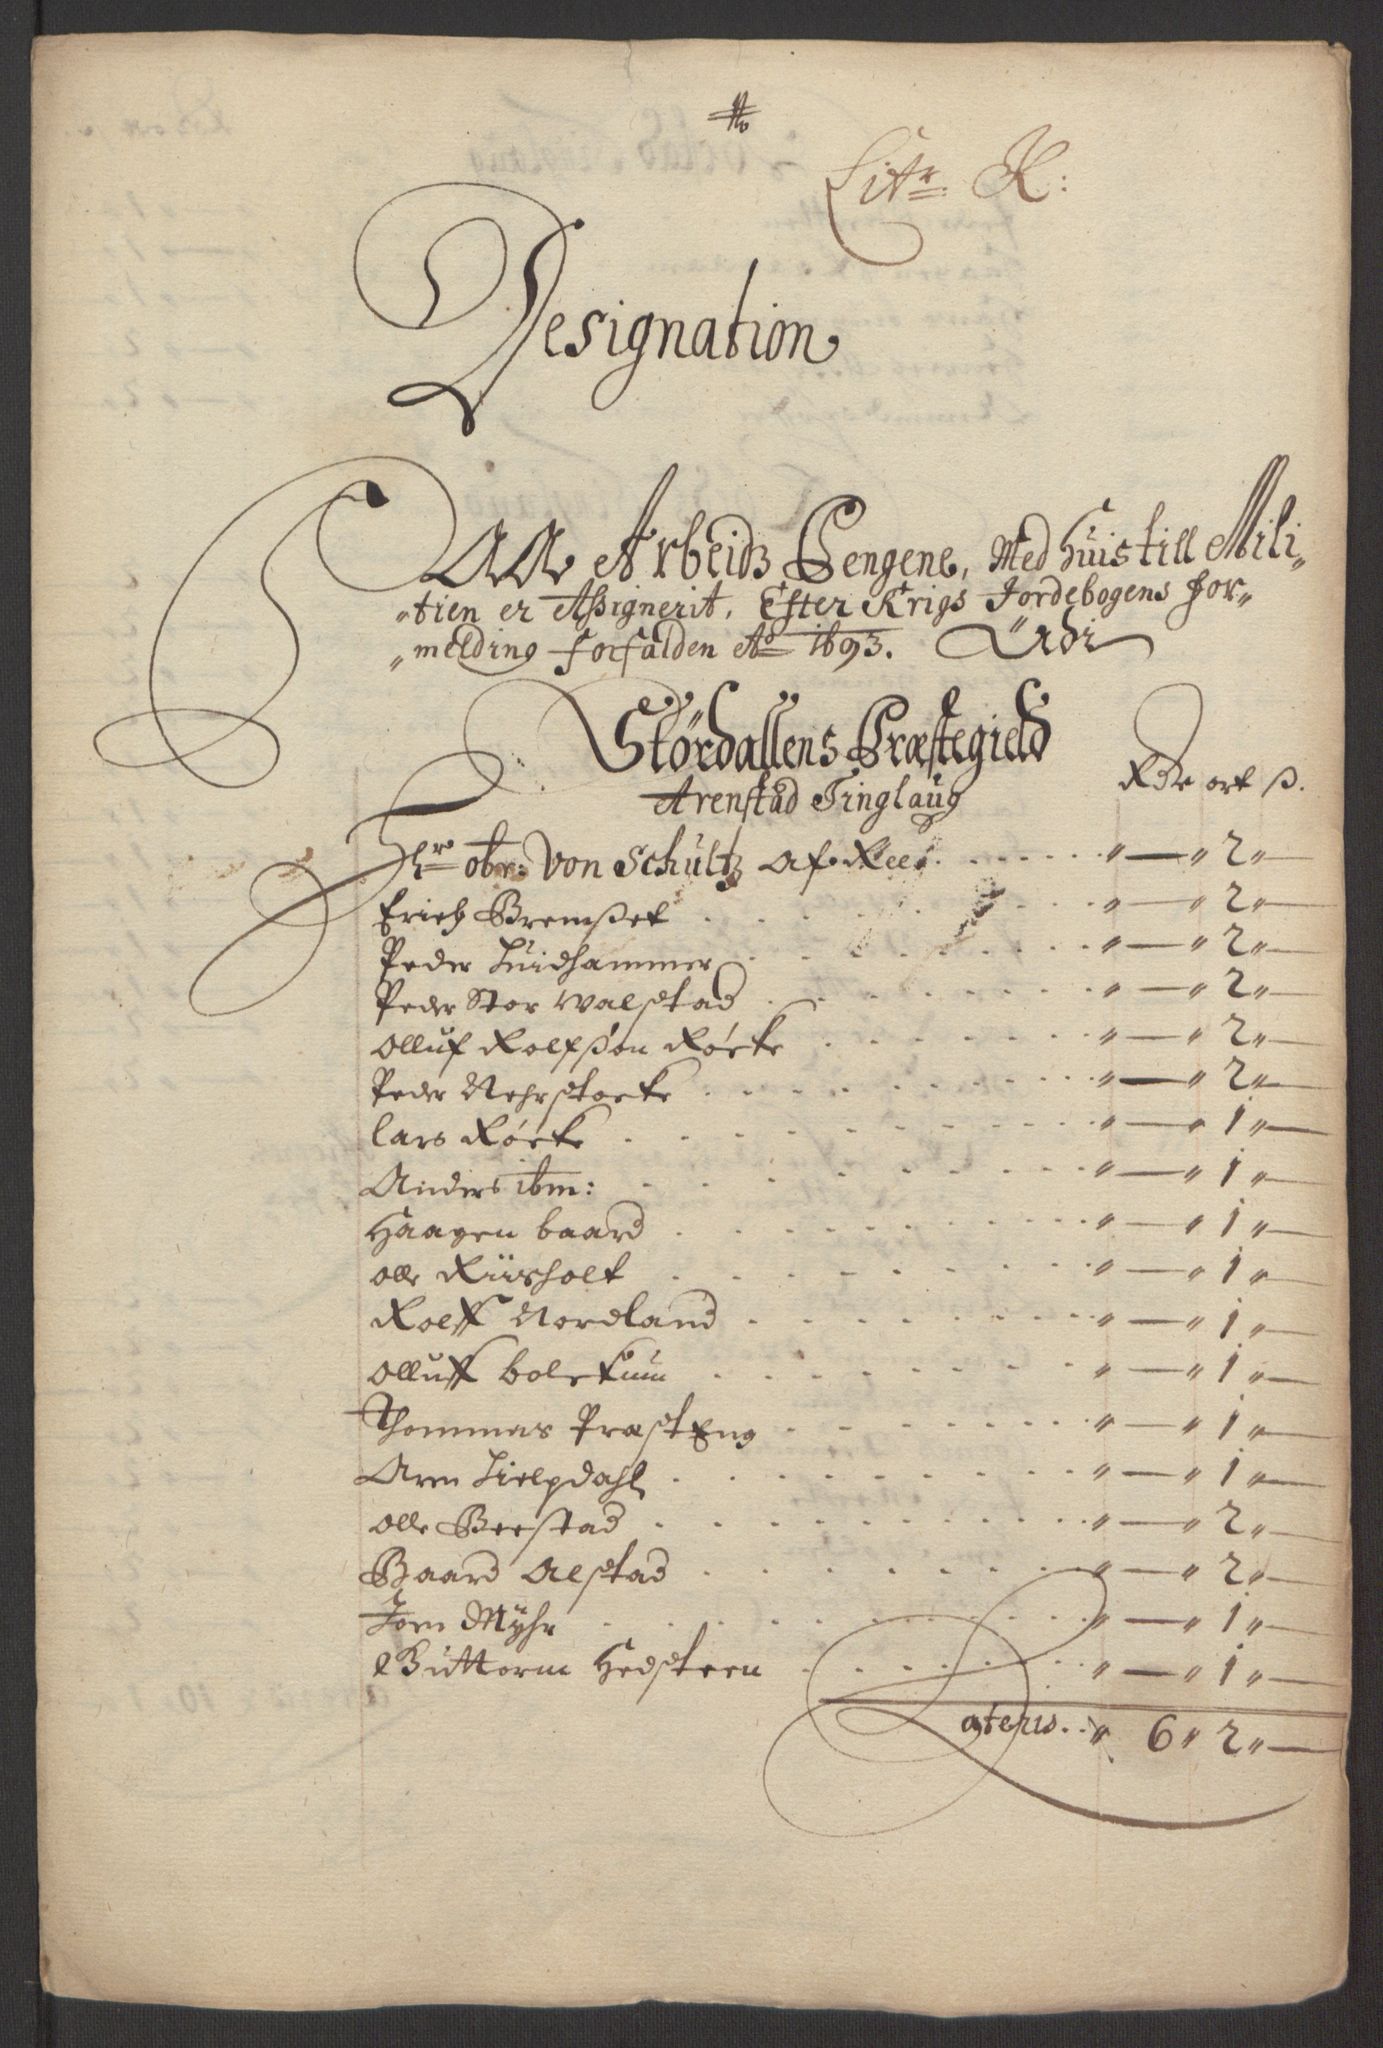 Litr. K:
Designation
Paa Arbeidz Pengene, Med huis till Mili„
„tien er Assignerit, Efter Krigs Jordebogens for„
„melding forfalden Ao 1693. Udi
Stördallens Præstegield
Arenstad Tinglaug
Rdr ort ß.
Hr obr: Von Schultz Af Ree . . . . . . „ — „ 2 „ —
Erich Bremset . . . . . . „ — „ 2 „ —
Peder Huidhammer . . . . . . „ — „ 2 „ —
Peder Stor Walstad . . . . . . „ — „ 2 „ —
Olluf Rolfsøn Røcke . . . . . . „ — „ 2 „ —
Peder Nehrstocke . . . . . . „ — „ 2 „ —
Lars Røcke . . . . . . „ — „ 1 „ —
Anders ibm: . . . . . . „ — „ 1 „ —
Haagen baard . . . . . . „ — „ 1 „ —
Olle Riisholt . . . . . . „ — „ 1 „ —
Rolff Nordland . . . . . . „ — „ 1 „ —
Olluff bolckum . . . . . . „ — „ 1 „ —
Thommas PræstEng . . . . . . „ — „ 1 „ —
Aren Hielpdahl . . . . . . „ — „ 1 „ —
Olle Beestad . . . . . . „ — „ 2 „ —
Baard Alstad . . . . . . „ — „ 2 „ —
Joen Myhr . . . . . . „ — „ 1 „ —
Guttorm Hedsteen . . . . . . „ — „ 1 „ —
Lateris . . „ 6 „ 2 „ —